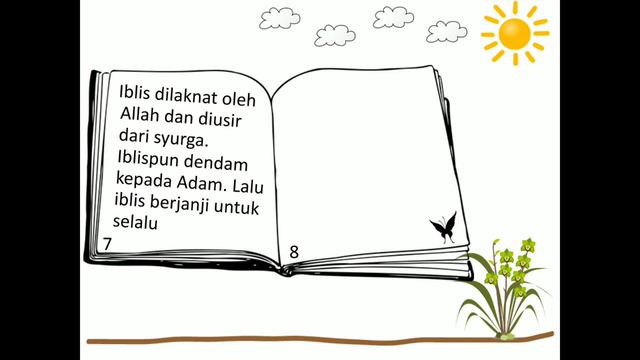 Iblis dilaknat oleh
Allah dan diusir
dari syurga.
Iblispun dendam
kepada Adam. Lalu
iblis berjanji untuk
selalu
7
8